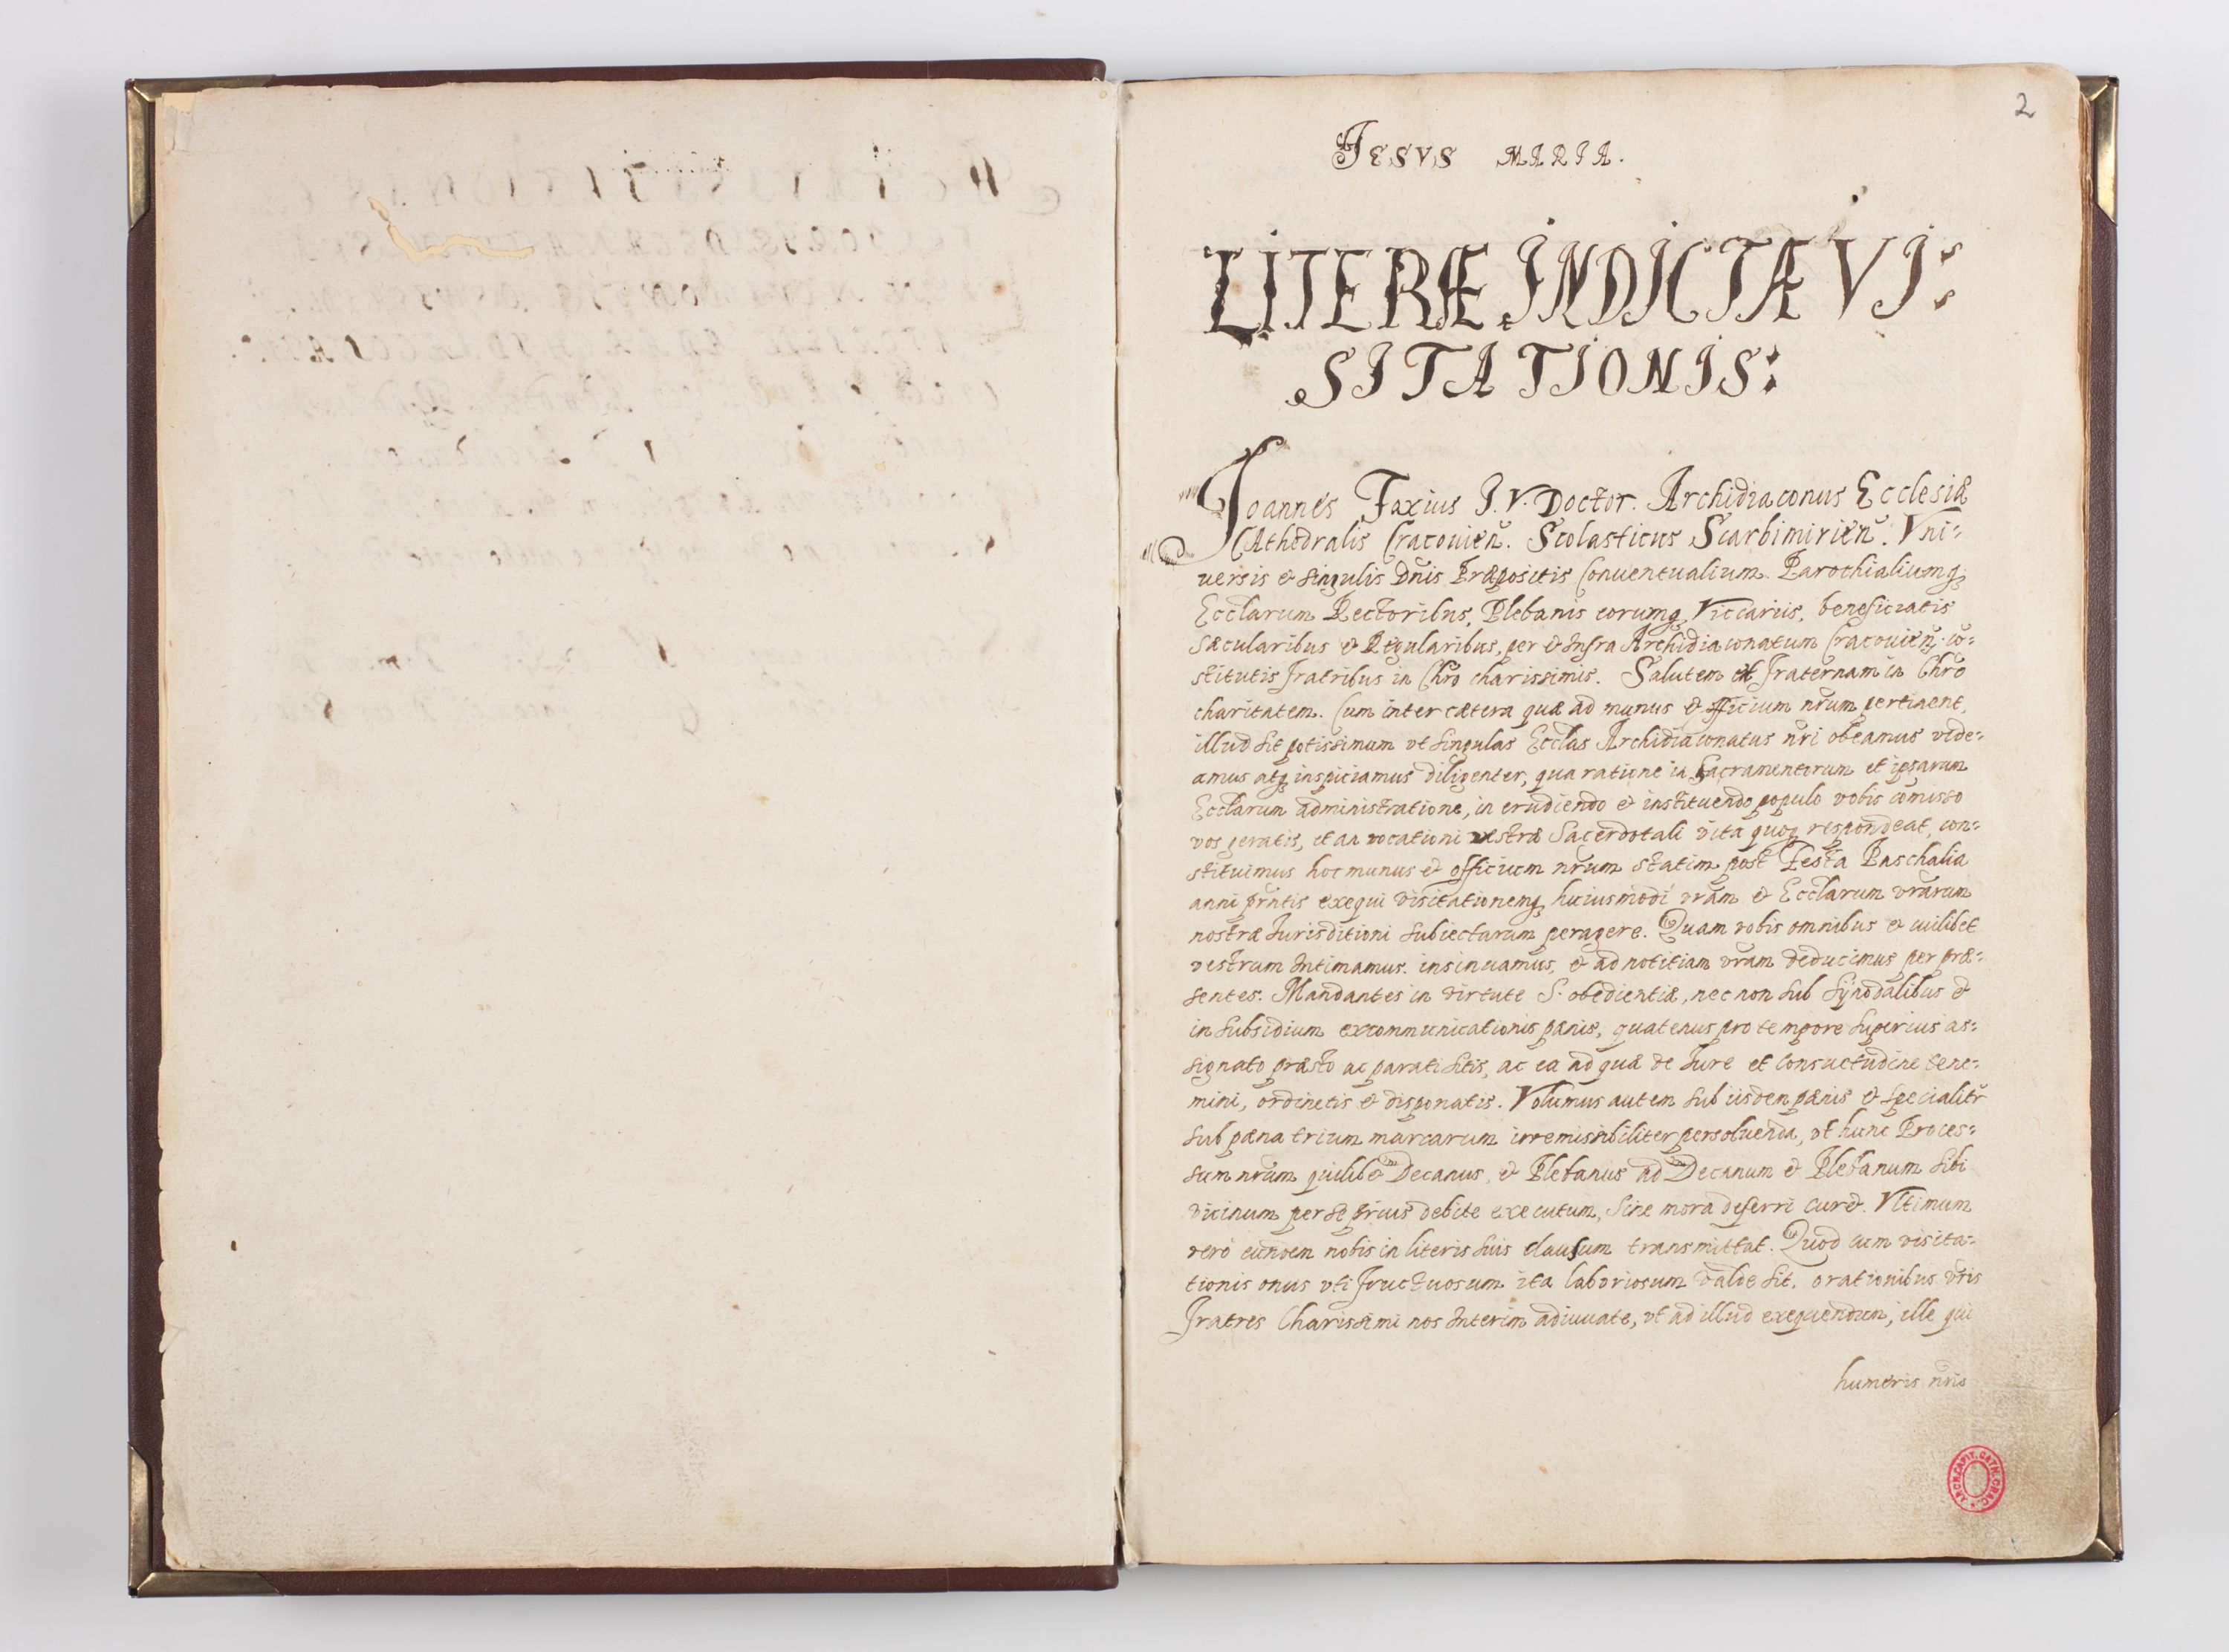 2
JESVS MARIA.
LITERÆ INDICTÆ VI:
SITATIONIS:
Joannes Foxius I. V. Doctor. Archidiaconus Ecclesiæ
CAthedralis Cracouieñ. Scolasticus Scarbimirień. Vni:
uersis et singulis Dñis Præpositis Conuentualium. Parochialiumq;
Ecclarum Rectoribus, Plebanis eorumq; Viccariis, beneficiatis
Sæcularibus et Regularibus, per et Infra Archidiaconatum Cracouień. cō:
stitutis fratribus in Chro charissimis. Salutem et fraternam in Chro
charitatem. Cum inter cætera quæ ad munus et officium nrum pertinent,
illud sit potissimum vt singulas Ecclas Archidiaconatus nri obeamus vide:
amus atq; inspiciamus diligenter, qua ratione in Sacramentorum et ipsarum
Ecclarum administratione, in erudiendo et instituendo populo vobis comisso
vos geratis, et an vocationi vestræ Sacerdotali vita quoq; respondeat, con:
stituimus hoc munus et officium nrum statim post Festa Paschalia
anni prntis exequi visitationemq; huiusmodi vram et Ecclarum vrarum
nostræ Iurisditioni subiectarum peragere. Quam vobis omnibus et cuilibet
vestrum Intimamus. insinuamus, et ad notitiam vram deducimus per præ:
sentes. Mandantes in virtute S. obedientiæ, nec non sub Synodalibus et
in subsidium excommunicationis pænis, quatenus pro tempore superius as:
signato præsto ac parati sitis, ac ea ad quæ de Iure et consuetudine tene:
mini, ordinetis et disponatis. Volumus autem sub iisdem pænis et specialitr
sub pæna trium marcarum irremissibiliter persoluenda, vt hunc Proces:
sum nrum quilibet Decanus, et Plebanus ad Decanum et Plebanum sibi
vicinum per se prius debite executum, sine mora deferri curet. Vltimum
vero eundem nobis in literis suis clausum transmittat. Quod cum visita:
tionis onus vti fructuosum ita laboriosum valde sit, orationibus vris
Fratres Charissimi nos Interim adiuuate, vt ad illud exequendum, ille qui
humeris nris
ARCH. CAPIT. CATH. CRAC.